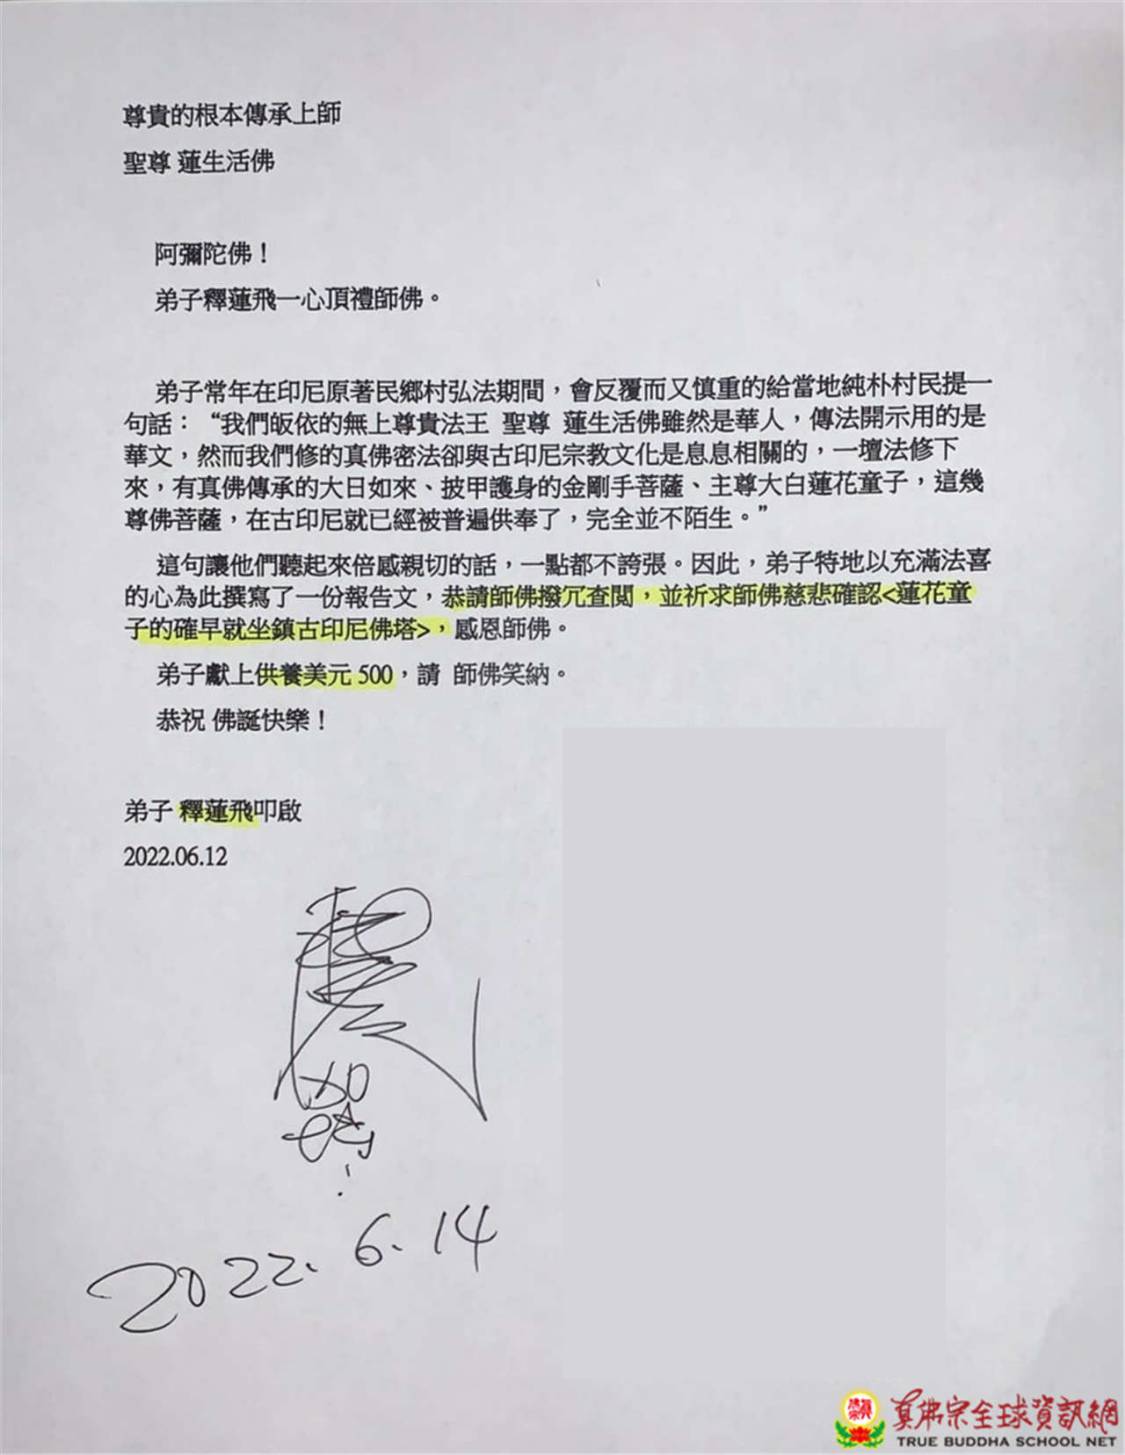 尊貴的根本傳承上師
聖尊 蓮生活佛
阿彌陀佛！
弟子釋蓮飛一心頂禮師佛。
弟子常年在印尼原著民鄉村弘法期間，會反覆而又慎重的給當地純朴村民提一
句話：“我們皈依的無上尊貴法王 聖尊 蓮生活佛雖然是華人，傳法開示用的是
華文，然而我們修的真佛密法卻與古印尼宗教文化是息息相關的，一壇法修下
來，有真佛傳承的大日如來、披甲護身的金剛手菩薩、主尊大白蓮花童子，這幾
尊佛菩薩，在古印尼就已經被普遍供奉了，完全並不陌生。”
這句讓他們聽起來倍感親切的話，一點都不誇張。因此，弟子特地以充滿法喜
的心為此撰寫了一份報告文，恭請師佛撥冗查閱，並祈求師佛慈悲確認<蓮花童
子的確早就坐鎮古印尼佛塔>，感恩師佛。
弟子獻上供養美元 500，請 師佛笑納。
恭祝 佛誕快樂！
弟子 釋蓮飛叩啟
2022.06.12
2022. 6. 14
真佛宗全球資訊網
TRUE BUDDHA SCHOOL NET